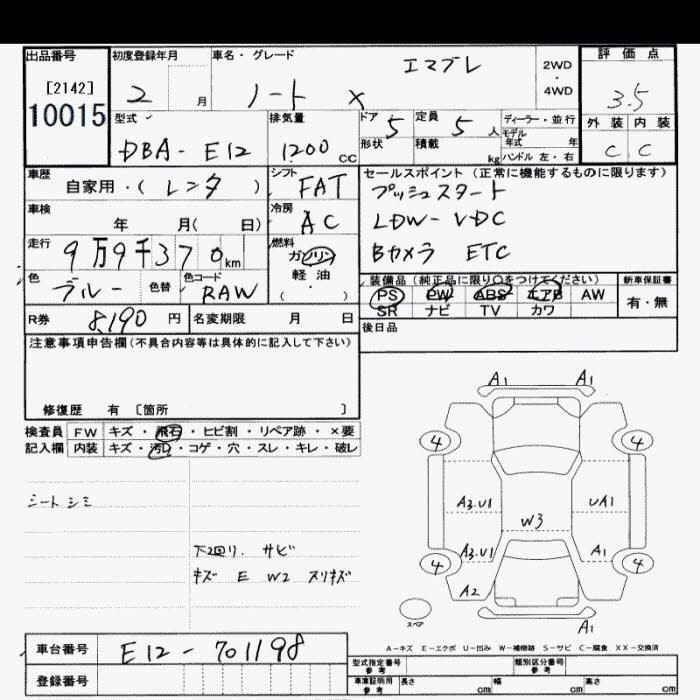 出品番号
[2142]
10015
初度登録年月
2 月
車名・グレード
エマブレ
ノート X
2WD
・
4WD
評価点
3.5
外装 内装
C C
型式
DBA-E12
排気量
1200 cc
ドア 5
形状
定員 5 人
積載 kg
ディーラー・並行
モデル
年式 年
ハンドル 左・右
車歴
自家用・(レンタ)
シフト
FAT
セールスポイント(正常に機能するものに限ります)
プッシュスタート
LDW-VDC
Bカメラ ETC
車検
年 月(日)
冷房
AC
走行
9万9千370km
燃料
ガソリン
軽油
(・)
色
ブルー
色替
色コード
RAW
装備品(純正品に限り○をつけてください)
PS PW ABS エアB AW
SR ナビ TV カワ
新車保証書
有・無
R券 8,190 円
名変期限 月 日
後日品
注意事項申告欄(不具合内容等は具体的に記入して下さい)
修復歴 有 〔箇所 〕
検査員
記入欄
FW キズ・飛石・ヒビ割・リペア跡・×要
内装 キズ・汚レ・コゲ・穴・スレ・キレ・破レ
シートシミ
下回り. サビ
キズ E W2 スリキズ
A1 A1
4 4
A3.U1 UA1
W3
A3.U1 A1
4 4
A2
スペア
A1
A-キズ E-エクボ U-凹み W-補修跡 S-サビ C-腐食 XX-交換済
車台番号
E12-701198
登録番号
型式指定番号
参考
類別区分番号
参考
車庫証明用
参考
長さ cm
幅 cm
高さ cm